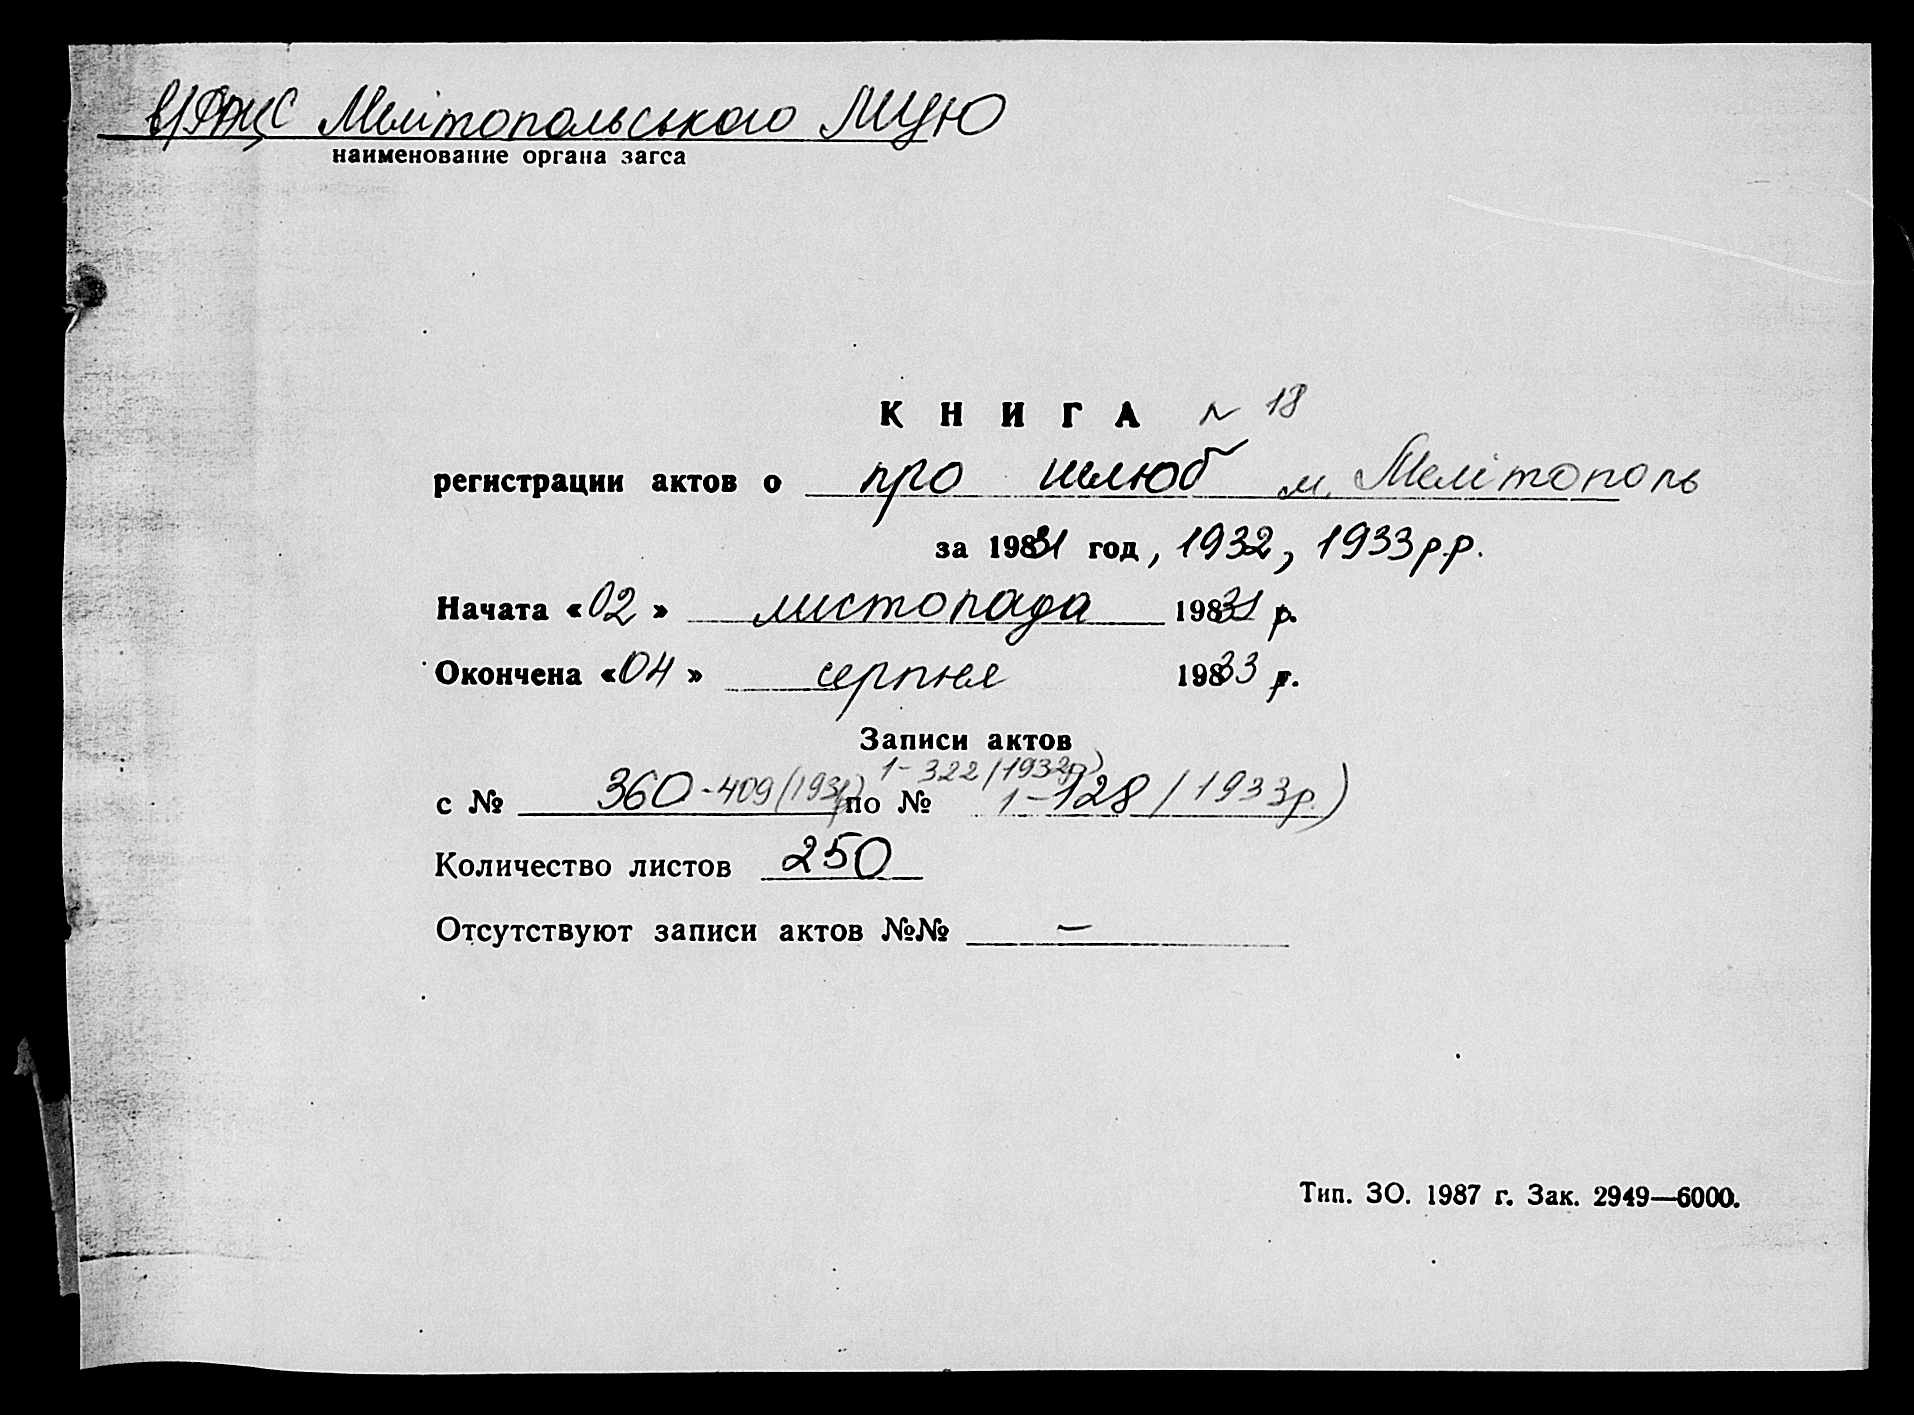 вРАЦС Мелітопольського МЦЮ
наименование органа загса
КНИГА № 18
регистрации актов о про шлюб м. Мелітополь
за 1931 год, 1932, 1933 р.р.
Начата «02» листопада 1931 р.
Окончена «04» серпня 1933 р.
Записи актов
1-322 (1932р)
с № 360-409 (1931р) по № 1-128 (1933р.)
Количество листов 250
Отсутствуют записи актов №№ —
Тип. ЗО. 1987 г. Зак. 2949—6000.